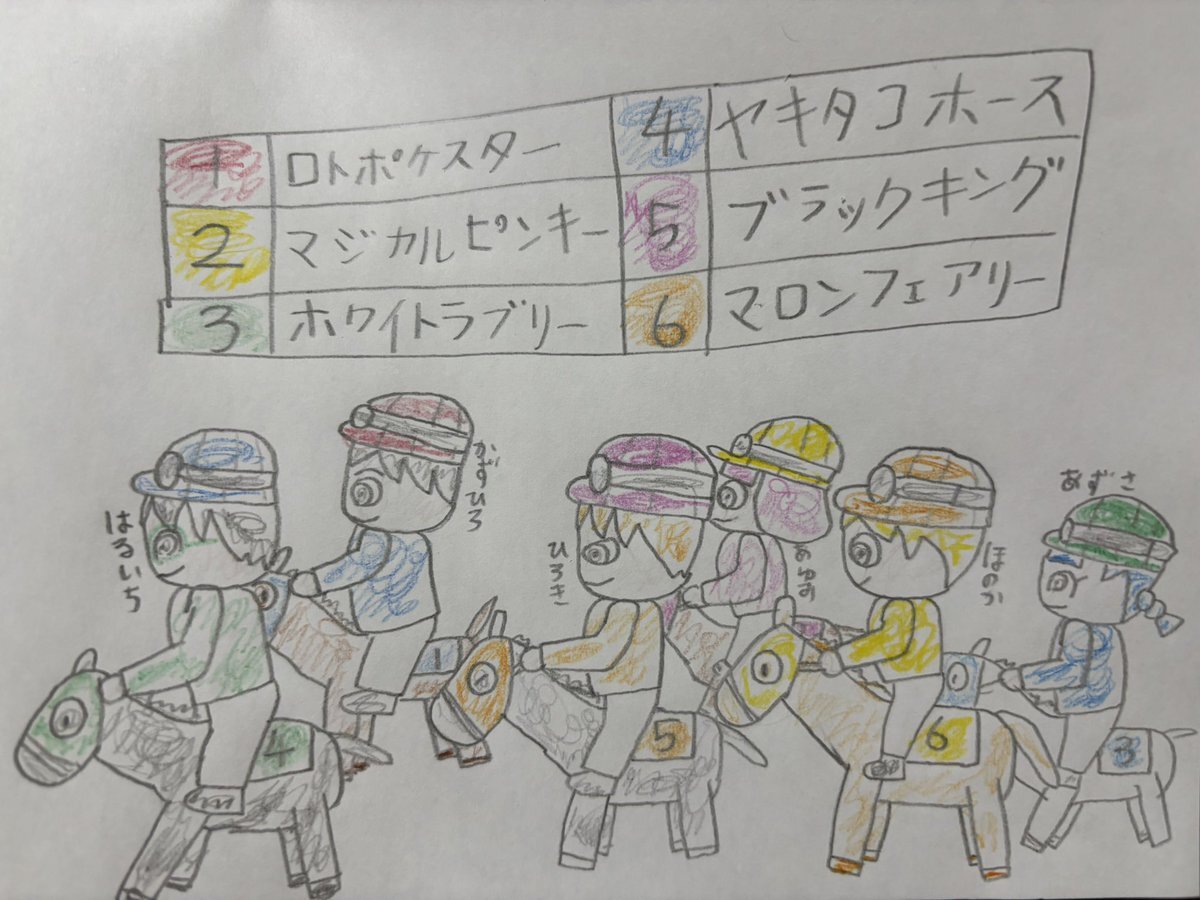 1 ロトポケスター
2 マジカルピンキー
3 ホワイトラブリー
4 ヤキタコホース
5 ブラックキング
6 マロンフェアリー
はるいち
かずひろ
ひろき
あゆみ
ほのか
あずさ
4
1
5
6
3